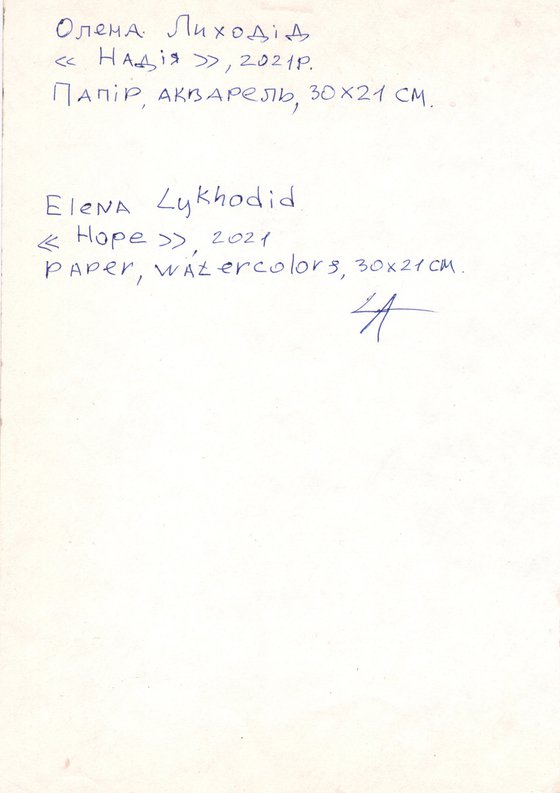 Олена Лиходід
« Надія », 2021р.
Папір, акварель, 30х21 см.
Elena Lykhodid
« Hope », 2021
paper, watercolors, 30x21 см.